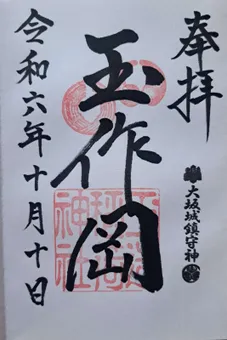 奉拝
大坂城鎮守神
玉作岡
令和六年十月十日